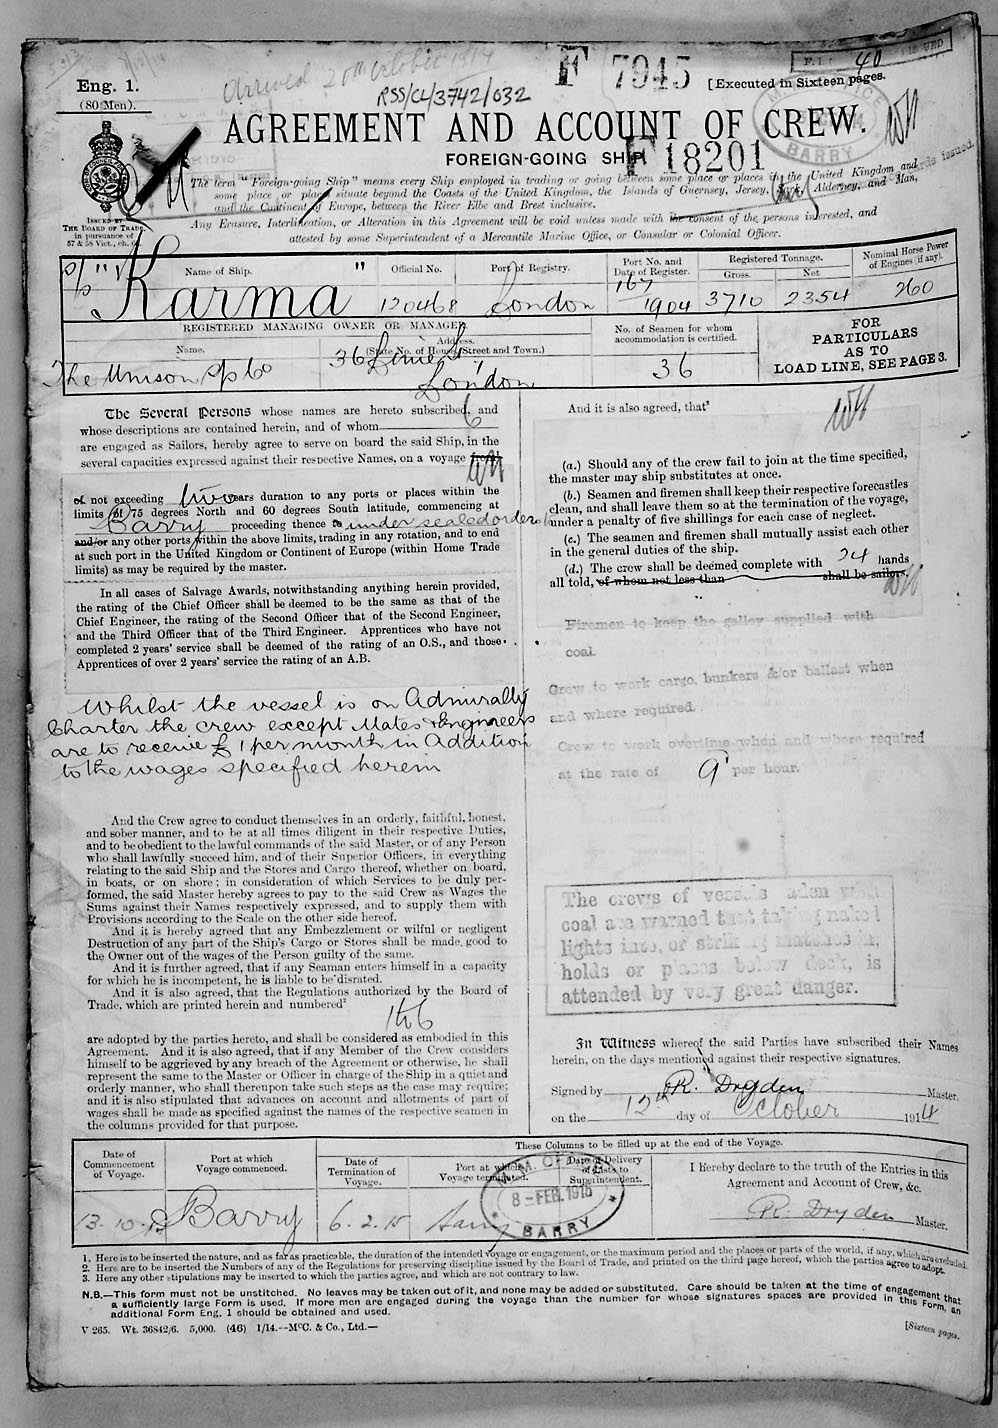 Eng. 1.
(80 Men).
Arrived 20th October 1914
RSS/CL/3742/032
F 7945
[Executed in Sixteen pages.
40
AGREEMENT AND ACCOUNT OF CREW.
FOREIGN-GOING SHIP.
F 18201
BARRY
ISSUED BY
THE BOARD OF TRADE,
in pursuance of
57 & 58 Vict., ch. 60
The term "Foreign-going Ship" means every Ship employed in trading or going between some place or places in the United Kingdom and
some place or places situate beyond the Coasts of the United Kingdom, the Islands of Guernsey, Jersey, Sark, Alderney, and Man,
and the Continent of Europe, between the River Elbe and Brest inclusive.
Any Erasure, Interlineation, or Alteration in this Agreement will be void unless made with the consent of the persons interested, and
attested by some Superintendent of a Mercantile Marine Office, or Consular or Colonial Officer.
Name of Ship.
Official No.
Port of Registry.
Port No. and
Date of Register.
Registered Tonnage.
Gross.
Net
Nominal Horse Power
of Engines (if any).
S/S "Karma"
120468
London
167
1904
3710
2354
260
REGISTERED MANAGING OWNER OR MANAGER
Name.
Address.
(State No. of House, Street and Town.)
No. of Seamen for whom
accommodation is certified.
FOR
PARTICULARS
AS TO
LOAD LINE, SEE PAGE 3.
The Unison Sp Co
36 Lime St
London
36
The Several Persons whose names are hereto subscribed, and
whose descriptions are contained herein, and of whom 6
are engaged as Sailors, hereby agree to serve on board the said Ship, in the
several capacities expressed against their respective Names, on a voyage from
of not exceeding two years duration to any ports or places within the
limits of 75 degrees North and 60 degrees South latitude, commencing at
Barry proceeding thence to under sealed orders
and/or any other ports within the above limits, trading in any rotation, and to end
at such port in the United Kingdom or Continent of Europe (within Home Trade
limits) as may be required by the master.
In all cases of Salvage Awards, notwithstanding anything herein provided,
the rating of the Chief Officer shall be deemed to be the same as that of the
Chief Engineer, the rating of the Second Officer that of the Second Engineer,
and the Third Officer that of the Third Engineer. Apprentices who have not
completed 2 years' service shall be deemed of the rating of an O.S., and those
Apprentices of over 2 years' service the rating of an A.B.
Whilst the vessel is on Admiralty
Charter the crew except Mates & Engineers
are to receive £1 per month in addition
to the wages specified herein
And the Crew agree to conduct themselves in an orderly, faithful, honest,
and sober manner, and to be at all times diligent in their respective Duties,
and to be obedient to the lawful commands of the said Master, or of any Person
who shall lawfully succeed him, and of their Superior Officers, in everything
relating to the said Ship and the Stores and Cargo thereof, whether on board,
in boats, or on shore; in consideration of which Services to be duly per-
formed, the said Master hereby agrees to pay to the said Crew as Wages the
Sums against their Names respectively expressed, and to supply them with
Provisions according to the Scale on the other side hereof.
And it is hereby agreed that any Embezzlement or wilful or negligent
Destruction of any part of the Ship's Cargo or Stores shall be made good to
the Owner out of the wages of the Person guilty of the same.
And it is further agreed, that if any Seaman enters himself in a capacity
for which he is incompetent, he is liable to be disrated.
And it is also agreed, that the Regulations authorized by the Board of
Trade, which are printed herein and numbered²
1 to 6
are adopted by the parties hereto, and shall be considered as embodied in this
Agreement. And it is also agreed, that if any Member of the Crew considers
himself to be aggrieved by any breach of the Agreement or otherwise, he shall
represent the same to the Master or Officer in charge of the Ship in a quiet and
orderly manner, who shall thereupon take such steps as the case may require;
and it is also stipulated that advances on account and allotments of part of
wages shall be made as specified against the names of the respective seamen in
the columns provided for that purpose.
And it is also agreed, that³
(a.) Should any of the crew fail to join at the time specified,
the master may ship substitutes at once.
(b.) Seamen and firemen shall keep their respective forecastles
clean, and shall leave them so at the termination of the voyage,
under a penalty of five shillings for each case of neglect.
(c.) The seamen and firemen shall mutually assist each other
in the general duties of the ship.
(d.) The crew shall be deemed complete with 24 hands
all told, of whom not less than shall be sailors.
Firemen to keep the galley supplied with
coal.
Crew to work cargo, bunkers &/or ballast when
and where required.
Crew to work overtime when and where required
at the rate of 9d per hour.
The crews of vessels laden with
coal are warned that taking naked
lights into, or striking matches in,
holds or places below deck, is
attended by very great danger.
In Witness whereof the said Parties have subscribed their Names
herein, on the days mentioned against their respective signatures.
Signed by R. Dryden Master.
on the 12th day of October 1914
These Columns to be filled up at the end of the Voyage.
Date of
Commencement
of Voyage.
Port at which
Voyage commenced.
Date of
Termination of
Voyage.
Port at which
Voyage terminated.
Date of Delivery
of Lists to
Superintendent.
I hereby declare to the truth of the Entries in this
Agreement and Account of Crew, &c.
13.10.14
Barry
6.2.15
Barry
M.M. OFFICE
8-FEB.1915
BARRY
R. Dryden Master.
1. Here is to be inserted the nature, and as far as practicable, the duration of the intended voyage or engagement, or the maximum period and the places or parts of the world, if any, which are excluded.
2. Here are to be inserted the Numbers of any of the Regulations for preserving discipline issued by the Board of Trade, and printed on the third page hereof, which the parties agree to adopt.
3. Here any other stipulations may be inserted to which the parties agree, and which are not contrary to law.
N.B.—This form must not be unstitched. No leaves may be taken out of it, and none may be added or substituted. Care should be taken at the time of engagement that
a sufficiently large Form is used. If more men are engaged during the voyage than the number for whose signatures spaces are provided in this Form, an
additional Form Eng. 1 should be obtained and used.
V 265. Wt. 36842/6. 5,000. (46) 1/14.—McC. & Co., Ltd.—
[Sixteen pages.